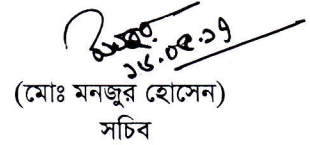 ১৬.০৫.১৭
(মোঃ মনজুর হোসেন)
সচিব